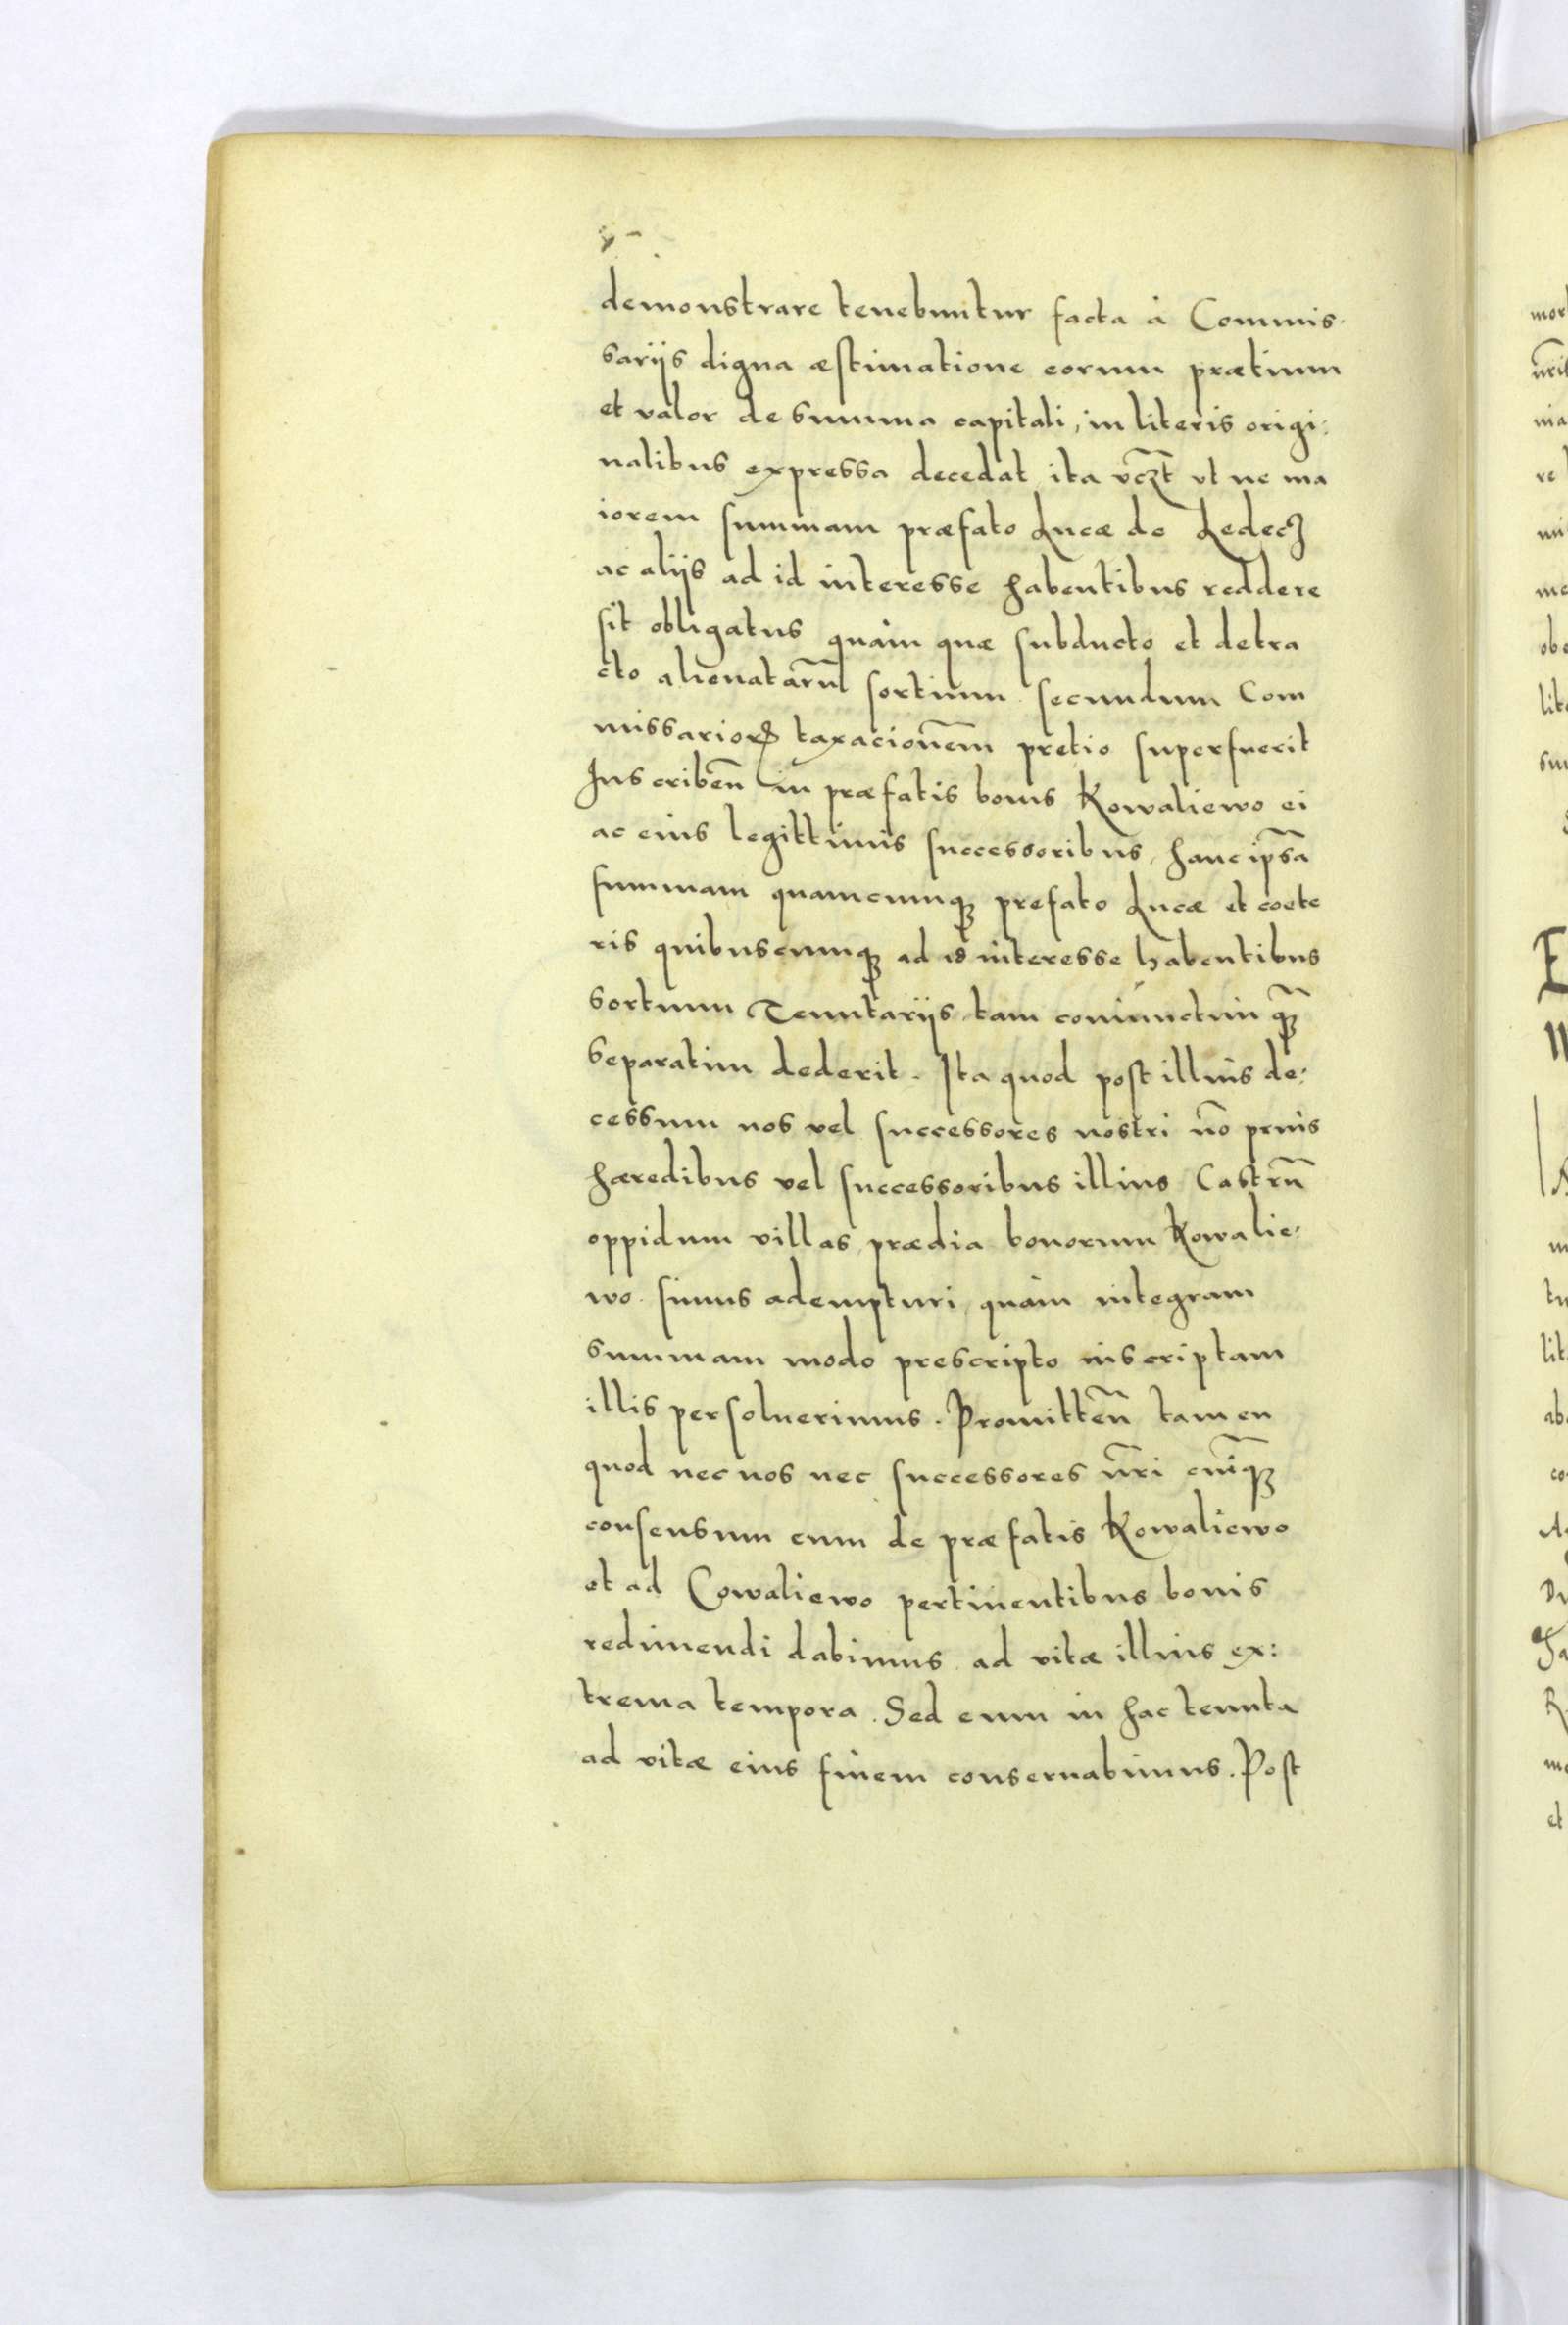 demonstrare tenebuntur facta à Commis-
sariis digna æstimatione eorum prætium
et valor de summa capitali, in literis origi:
nalibus expressa decedat ita vcꝫt vt ne ma
iorem summam præfato Lucæ de Ledecz
ac aliis ad id interesse habentibus reddere
sit obligatus quàm quæ subducto et detra
cto alienatarũ sortium secundum Com
missarioꝝ taxacionem̃ pretio superfuerit
Inscribeñ in præfatis bonis Kowaliewo ei
ac eius legittimis successoribus, hanc ip̃sã
summam quamcunqꝫ prefato Lucæ et coete
ris quibuscunqꝫ ad id interesse habentibus
sortium Tenutariis tam coniunctim q̃ꝫ
separatim dederit. Ita quod post illius de:
cessum nos vel successores nostri nõ prius
hæredibus vel successoribus illius Castrũ
oppidum villas prædia bonorum Kowalie:
wo simus adempturi, quàm integram
summam modo prescripto inscriptam
illis persoluerimus. Promitteñ tamen
quod nec nos nec successores nr̃i cuiq̃ꝫ
consensum eum de præfatis Kowaliewo
et ad Cowaliewo pertinentibus bonis
redimendi dabimus ad vitæ illius ex:
trema tempora. Sed eum in hac tenuta
ad vitæ eius finem conseruabimus. Post